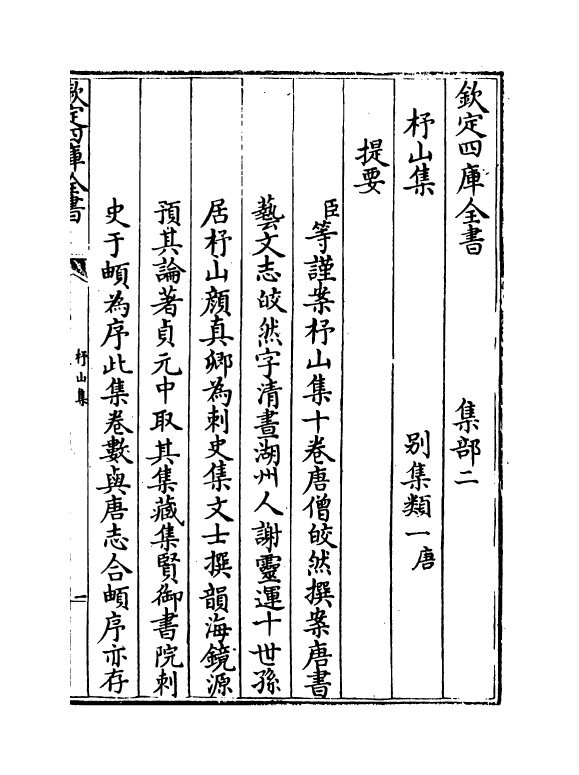 欽定四庫全書　集部二
杼山集　別集類一唐
提要
臣等謹案杼山集十卷唐僧皎然撰案唐書
藝文志皎然字清晝湖州人謝靈運十世孫
居杼山顔真卿為刺史集文士撰韻海鏡源
預其論著貞元中取其集藏集賢御書院刺
史于頔為序此集卷數與唐志合頔序亦存
欽定四庫全書
杼山集
一